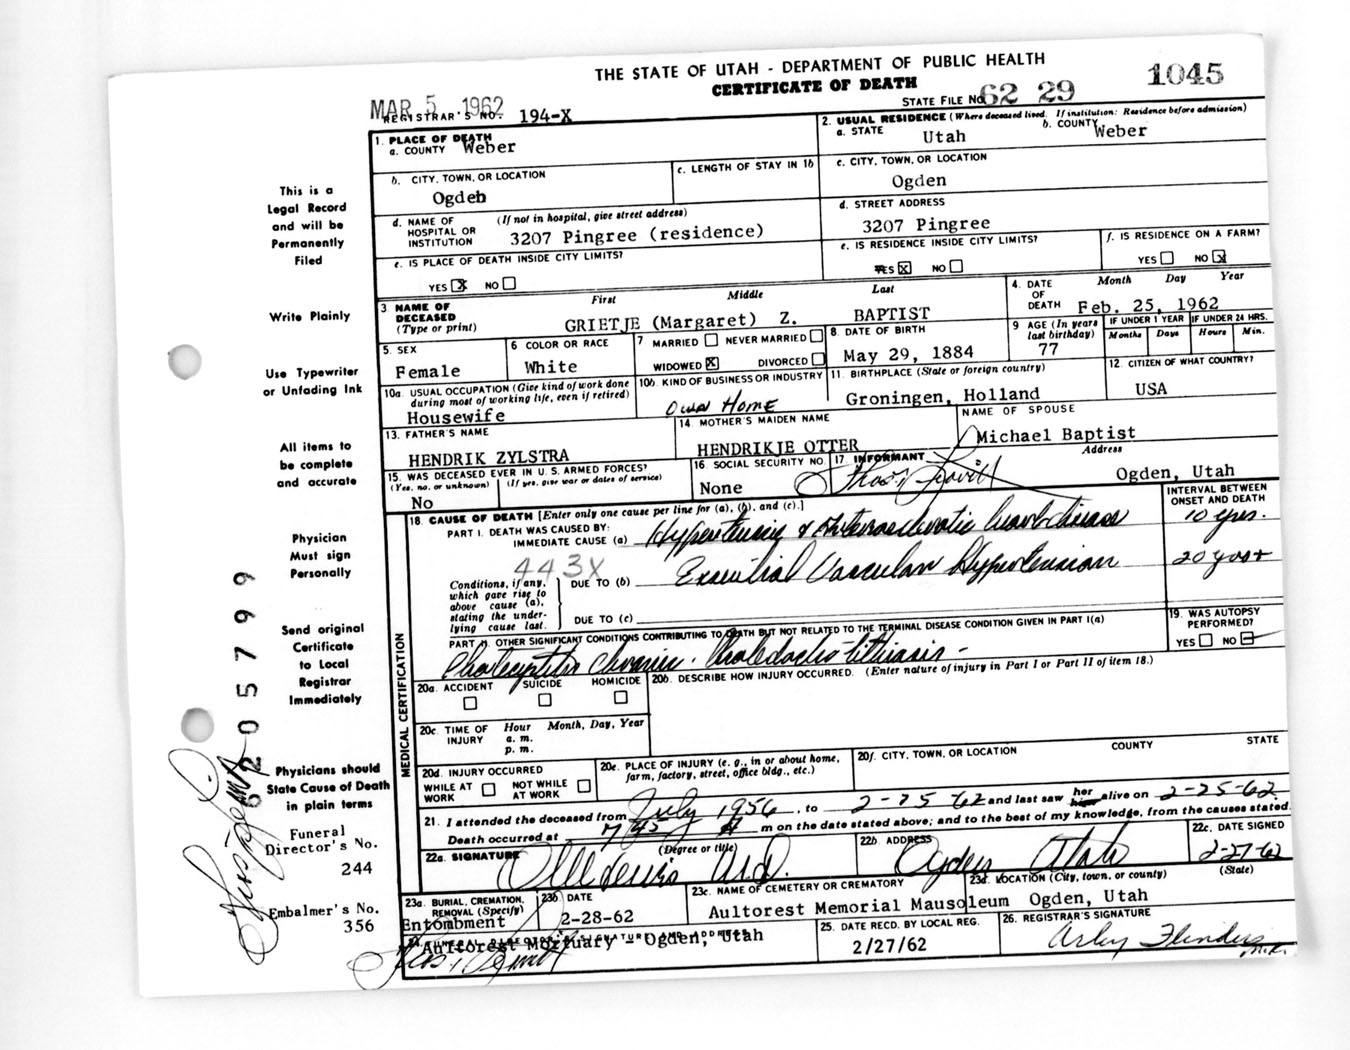 THE STATE OF UTAH - DEPARTMENT OF PUBLIC HEALTH
CERTIFICATE OF DEATH
1045
MAR 5 1962
STATE FILE No. 62 29
REGISTRAR'S NO. 194-X
1. PLACE OF DEATH
a. COUNTY Weber
2. USUAL RESIDENCE (Where deceased lived. If institution: Residence before admission)
a. STATE Utah b. COUNTY Weber
b. CITY, TOWN, OR LOCATION Ogden
c. LENGTH OF STAY IN 1b
c. CITY, TOWN, OR LOCATION
Ogden
d. NAME OF HOSPITAL OR INSTITUTION (If not in hospital, give street address)
3207 Pingree (residence)
d. STREET ADDRESS
3207 Pingree
e. IS PLACE OF DEATH INSIDE CITY LIMITS?
YES X NO
e. IS RESIDENCE INSIDE CITY LIMITS?
YES X NO
f. IS RESIDENCE ON A FARM?
YES NO X
3. NAME OF DECEASED (Type or print)
First Middle Last
GRIETJE (Margaret) Z. BAPTIST
4. DATE OF DEATH Month Day Year
Feb. 25, 1962
5. SEX
Female
6 COLOR OR RACE
White
7 MARRIED NEVER MARRIED
WIDOWED X DIVORCED
8. DATE OF BIRTH
May 29, 1884
9 AGE (In years last birthday)
77
IF UNDER 1 YEAR Months Days
IF UNDER 24 HRS. Hours Min.
10a. USUAL OCCUPATION (Give kind of work done during most of working life, even if retired)
Housewife
10b. KIND OF BUSINESS OR INDUSTRY
Own Home
11. BIRTHPLACE (State or foreign country)
Groningen, Holland
12. CITIZEN OF WHAT COUNTRY?
USA
13. FATHER'S NAME
HENDRIK ZYLSTRA
14. MOTHER'S MAIDEN NAME
HENDRIKJE OTTER
NAME OF SPOUSE
Michael Baptist
15. WAS DECEASED EVER IN U. S. ARMED FORCES?
(Yes, no, or unknown) (If yes, give war or dates of service)
No
16. SOCIAL SECURITY NO.
None
17. INFORMANT Address
Ogden, Utah
18. CAUSE OF DEATH [Enter only one cause per line for (a), (b), and (c).]
INTERVAL BETWEEN ONSET AND DEATH
PART I. DEATH WAS CAUSED BY:
IMMEDIATE CAUSE (a) Hypertensive & Arteriosclerotic heart disease 10 yrs.
443X
Conditions, if any, which gave rise to above cause (a), stating the underlying cause last.
DUE TO (b) Essential Vascular Hypertension 20 yrs+
DUE TO (c)
PART II. OTHER SIGNIFICANT CONDITIONS CONTRIBUTING TO DEATH BUT NOT RELATED TO THE TERMINAL DISEASE CONDITION GIVEN IN PART I(a)
Cholecystitis chronic. Choledocho-lithiasis -
19. WAS AUTOPSY PERFORMED?
YES NO
20a. ACCIDENT SUICIDE HOMICIDE
20b. DESCRIBE HOW INJURY OCCURRED. (Enter nature of injury in Part I or Part II of item 18.)
20c. TIME OF INJURY Hour a. m. p. m. Month, Day, Year
20d. INJURY OCCURRED
WHILE AT WORK NOT WHILE AT WORK
20e. PLACE OF INJURY (e. g., in or about home, farm, factory, street, office bldg., etc.)
20f. CITY, TOWN, OR LOCATION COUNTY STATE
21. I attended the deceased from July 1956, to 2-25-62 and last saw her him alive on 2-25-62.
Death occurred at 7 45 A m on the date stated above; and to the best of my knowledge, from the causes stated.
22a. SIGNATURE (Degree or title)
M.D.
22b. ADDRESS
Ogden Utah
22c. DATE SIGNED
2-27-62
23a. BURIAL, CREMATION, REMOVAL (Specify)
Entombment
23b DATE
2-28-62
23c. NAME OF CEMETERY OR CREMATORY
Aultorest Memorial Mausoleum
23d. LOCATION (City, town, or county) (State)
Ogden, Utah
24. FUNERAL DIRECTOR'S SIGNATURE AND ADDRESS
Aultorest Mortuary - Ogden, Utah
25. DATE RECD. BY LOCAL REG.
2/27/62
26. REGISTRAR'S SIGNATURE
Arley Flinders
m.r.
MEDICAL CERTIFICATION
This is a
Legal Record
and will be
Permanently
Filed
Write Plainly
Use Typewriter
or Unfading Ink
All items to
be complete
and accurate
Physician
Must sign
Personally
Send original
Certificate
to Local
Registrar
Immediately
Physicians should
State Cause of Death
in plain terms
Funeral
Director's No.
244
Embalmer's No.
356
62 205799